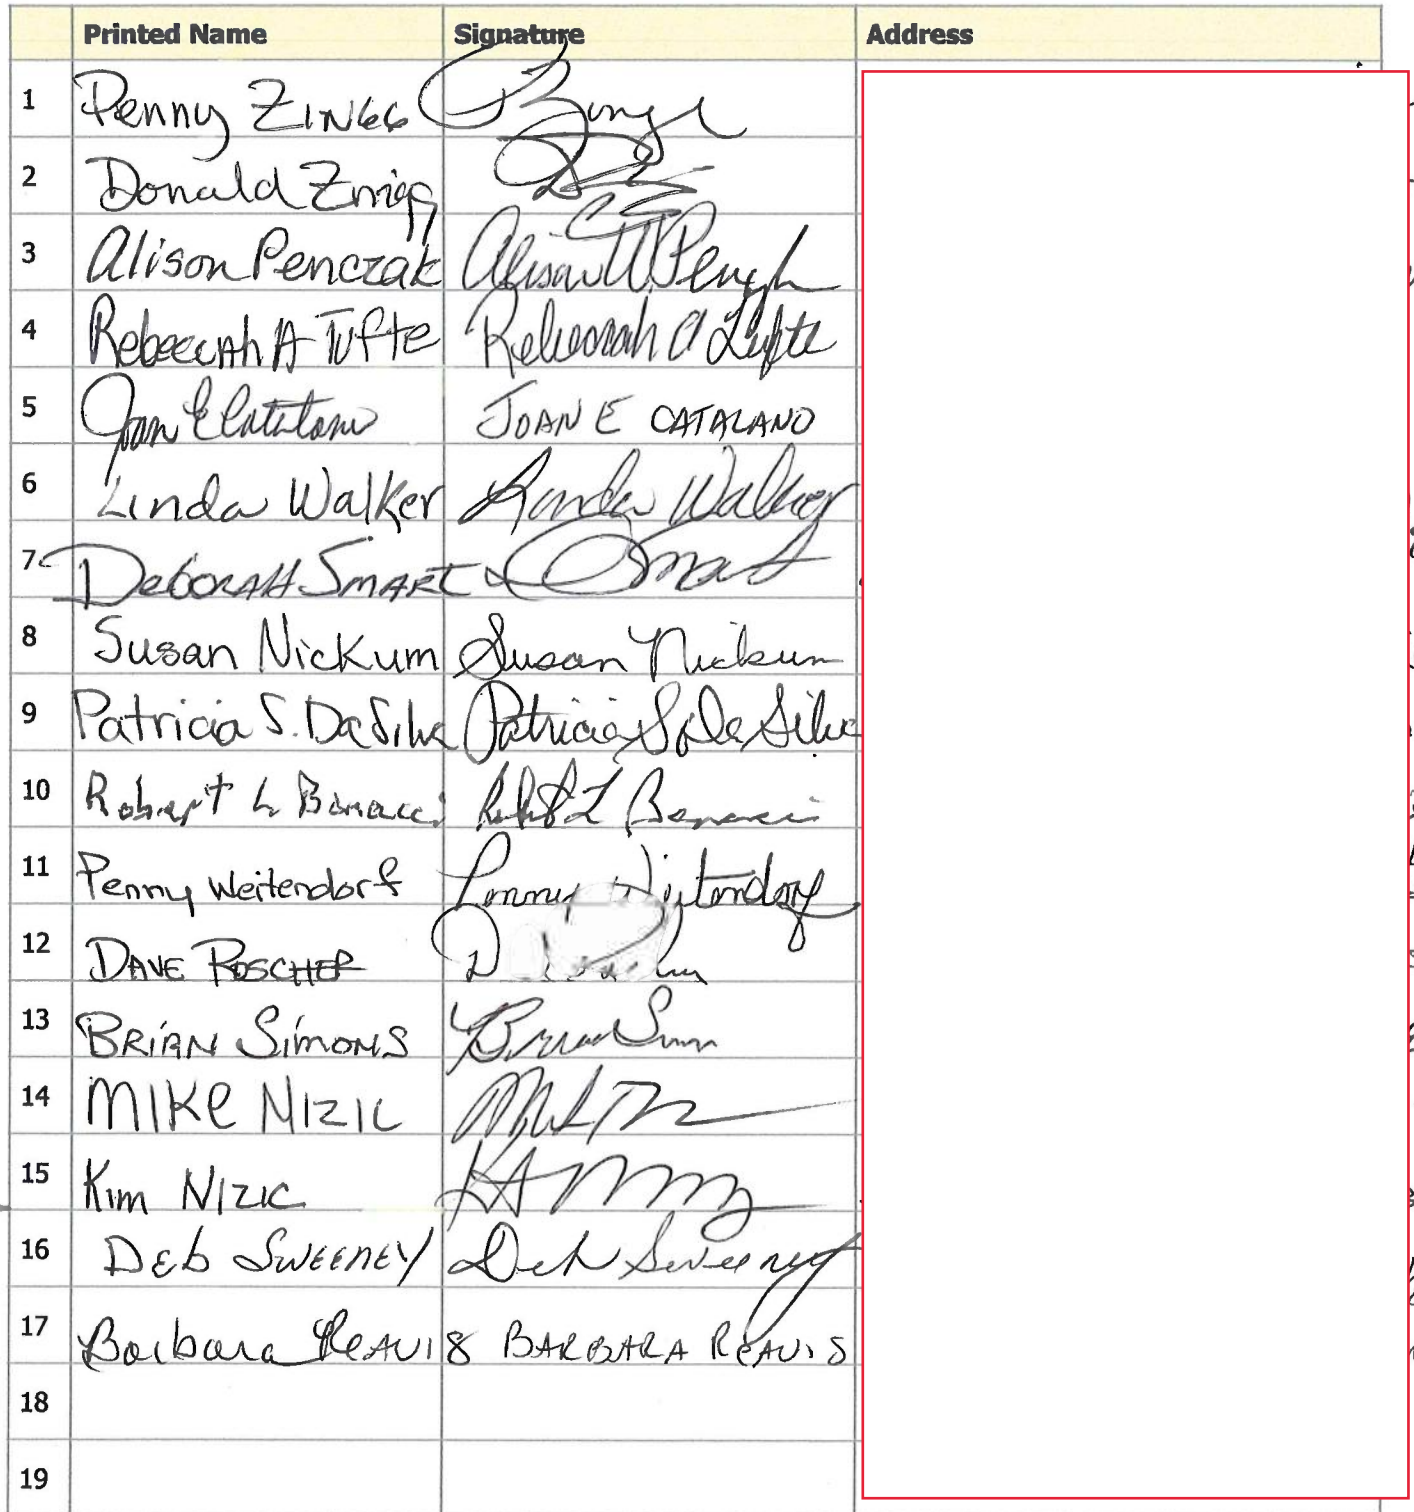 Printed Name Signature Address
1 Penny ZINGG
2 Donald Zningg
3 Alison Penczak Alison W Penczak
4 Rebeccah A Tufte Rebeccah A Tufte
5 Joan E Catalano JOAN E CATALANO
6 Linda Walker Linda Walker
7 DEBORAH SMART Smart
8 Susan Nickum Susan Nickum
9 Patricia S. DaSilva Patricia S DaSilva
10 Robert L Bonacci Robt L Bonacci
11 Penny Weitendorf Penny Weitendorf
12 DAVE ROSCHER
13 BRIAN SIMONS Brian
14 MIKE NIZIC
15 Kim NIZIC
16 DEb SWEENEY Deb Sweeney
17 Barbara REAVIS BARBARA REAVIS
18
19